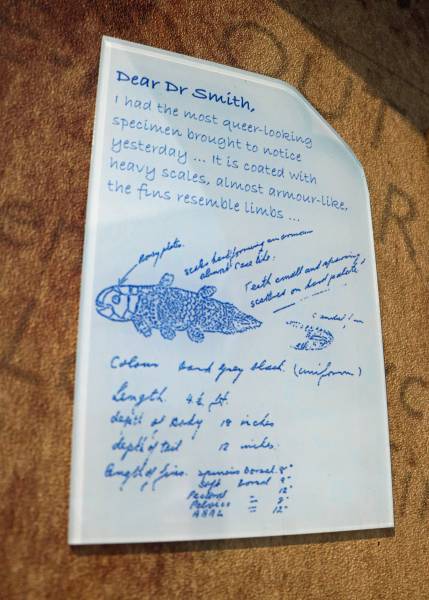 Dear Dr Smith,
I had the most queer-looking
specimen brought to notice
yesterday ... It is coated with
heavy scales, almost armour-like,
the fins resemble limbs ...
bony plate.
scales hard, forming an armour
almost
Teeth small and
scattered on hard palate
Colour hard grey black (uniform)
Length. 4½ ft.
depth of Body 18 inches
depth of tail 12 inches.
Length of fins. Spinous Dorsal 8"
Soft Dorsal 9"
Pectoral = 12"
Pelvic = 9"
ANAL = 12"